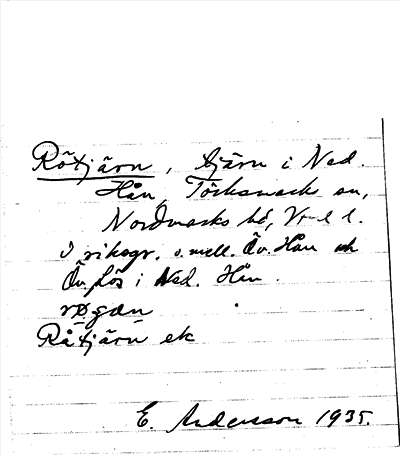 Rötjärn, tjärn i Ned.
Hån, Töcksmark sn,
Nordmarks hd, Vrml l.
I riksgr. s. mell. Öv. Hån och
Öv. i Ned. Hån.
Råtjärn ek
E. Andersson 1935.